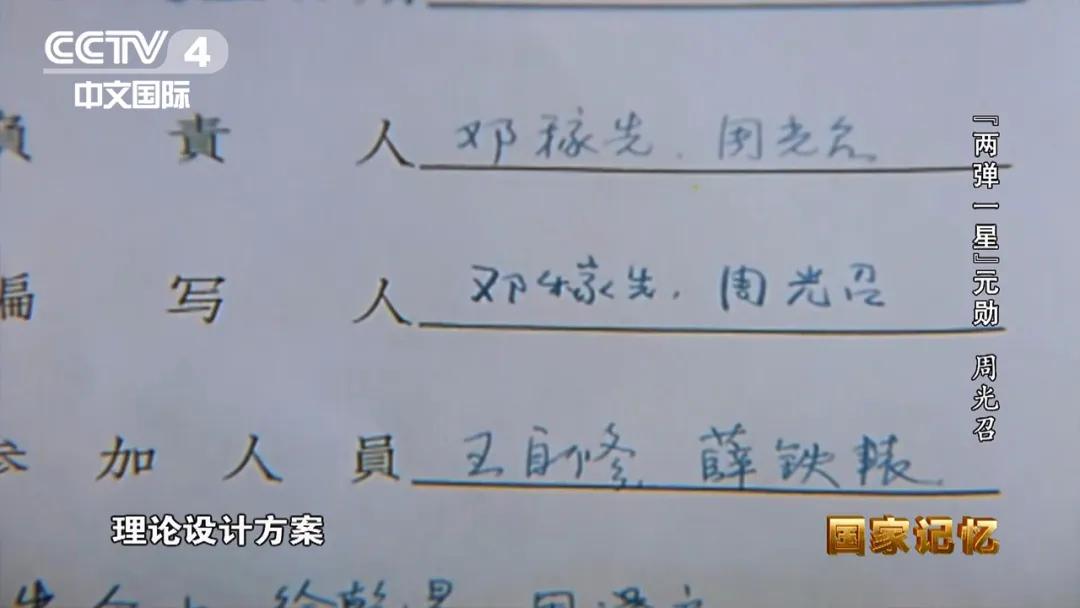 CCTV 4
中文国际
負責人 邓稼先、周光召
编写人 邓稼先、周光召
参加人員 王自修 薛铁辕
『两弹一星』元勋 周光召
理论设计方案
国家记忆